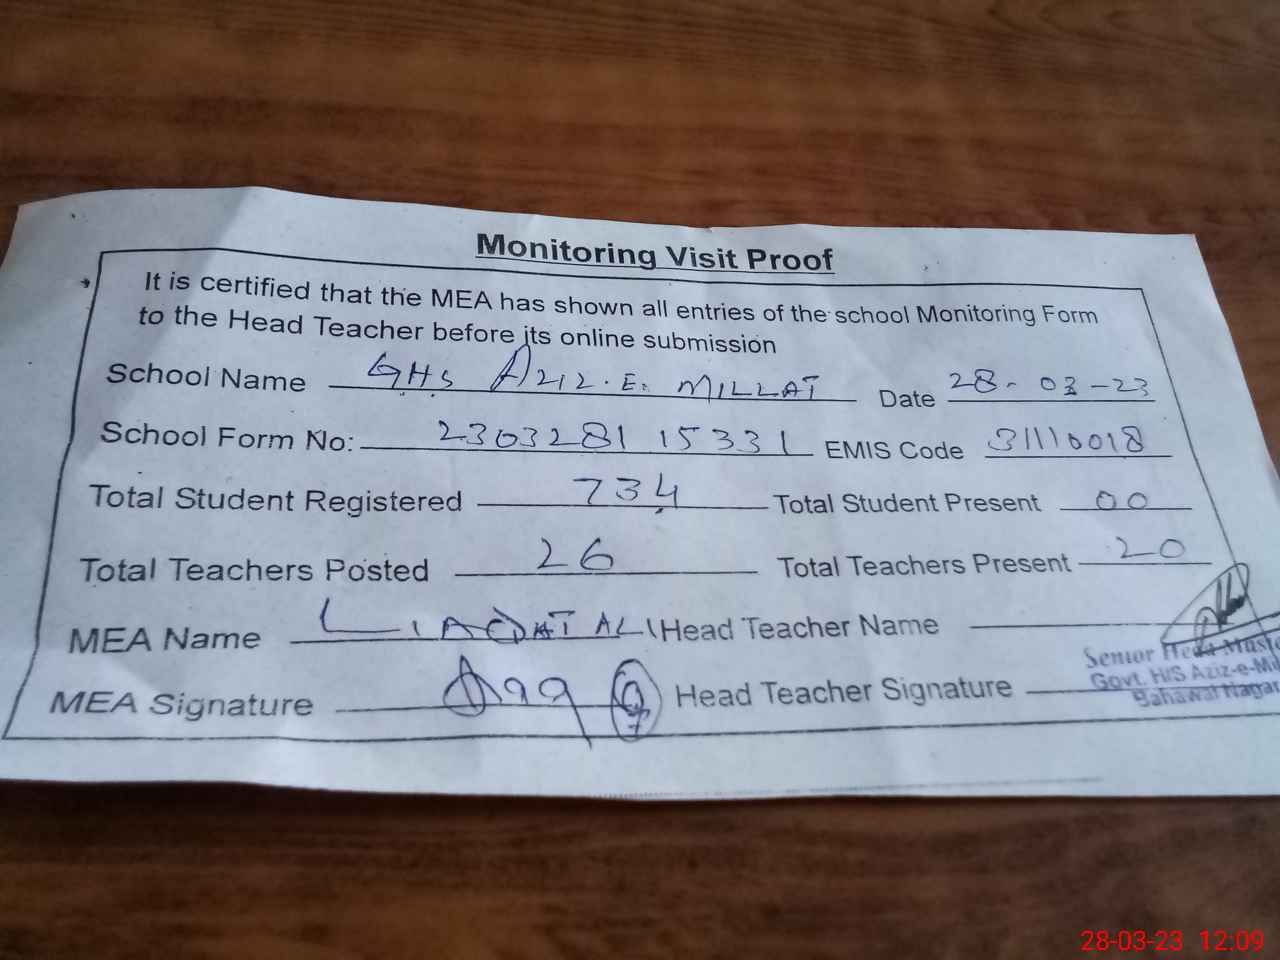 Monitoring Visit Proof
It is certified that the MEA has shown all entries of the school Monitoring Form
to the Head Teacher before its online submission
School Name GHS AZIZ.E. MILLAT Date 28-03-23
School Form No: 2303281 15331 EMIS Code 31110018
Total Student Registered 734 Total Student Present 00
Total Teachers Posted 26 Total Teachers Present 20
MEA Name LIAQAT ALI Head Teacher Name
Senior Head Maste
MEA Signature Head Teacher Signature
Govt. H/S Aziz-e-Mil
Bahawal Nagar
28-03-23 12:09